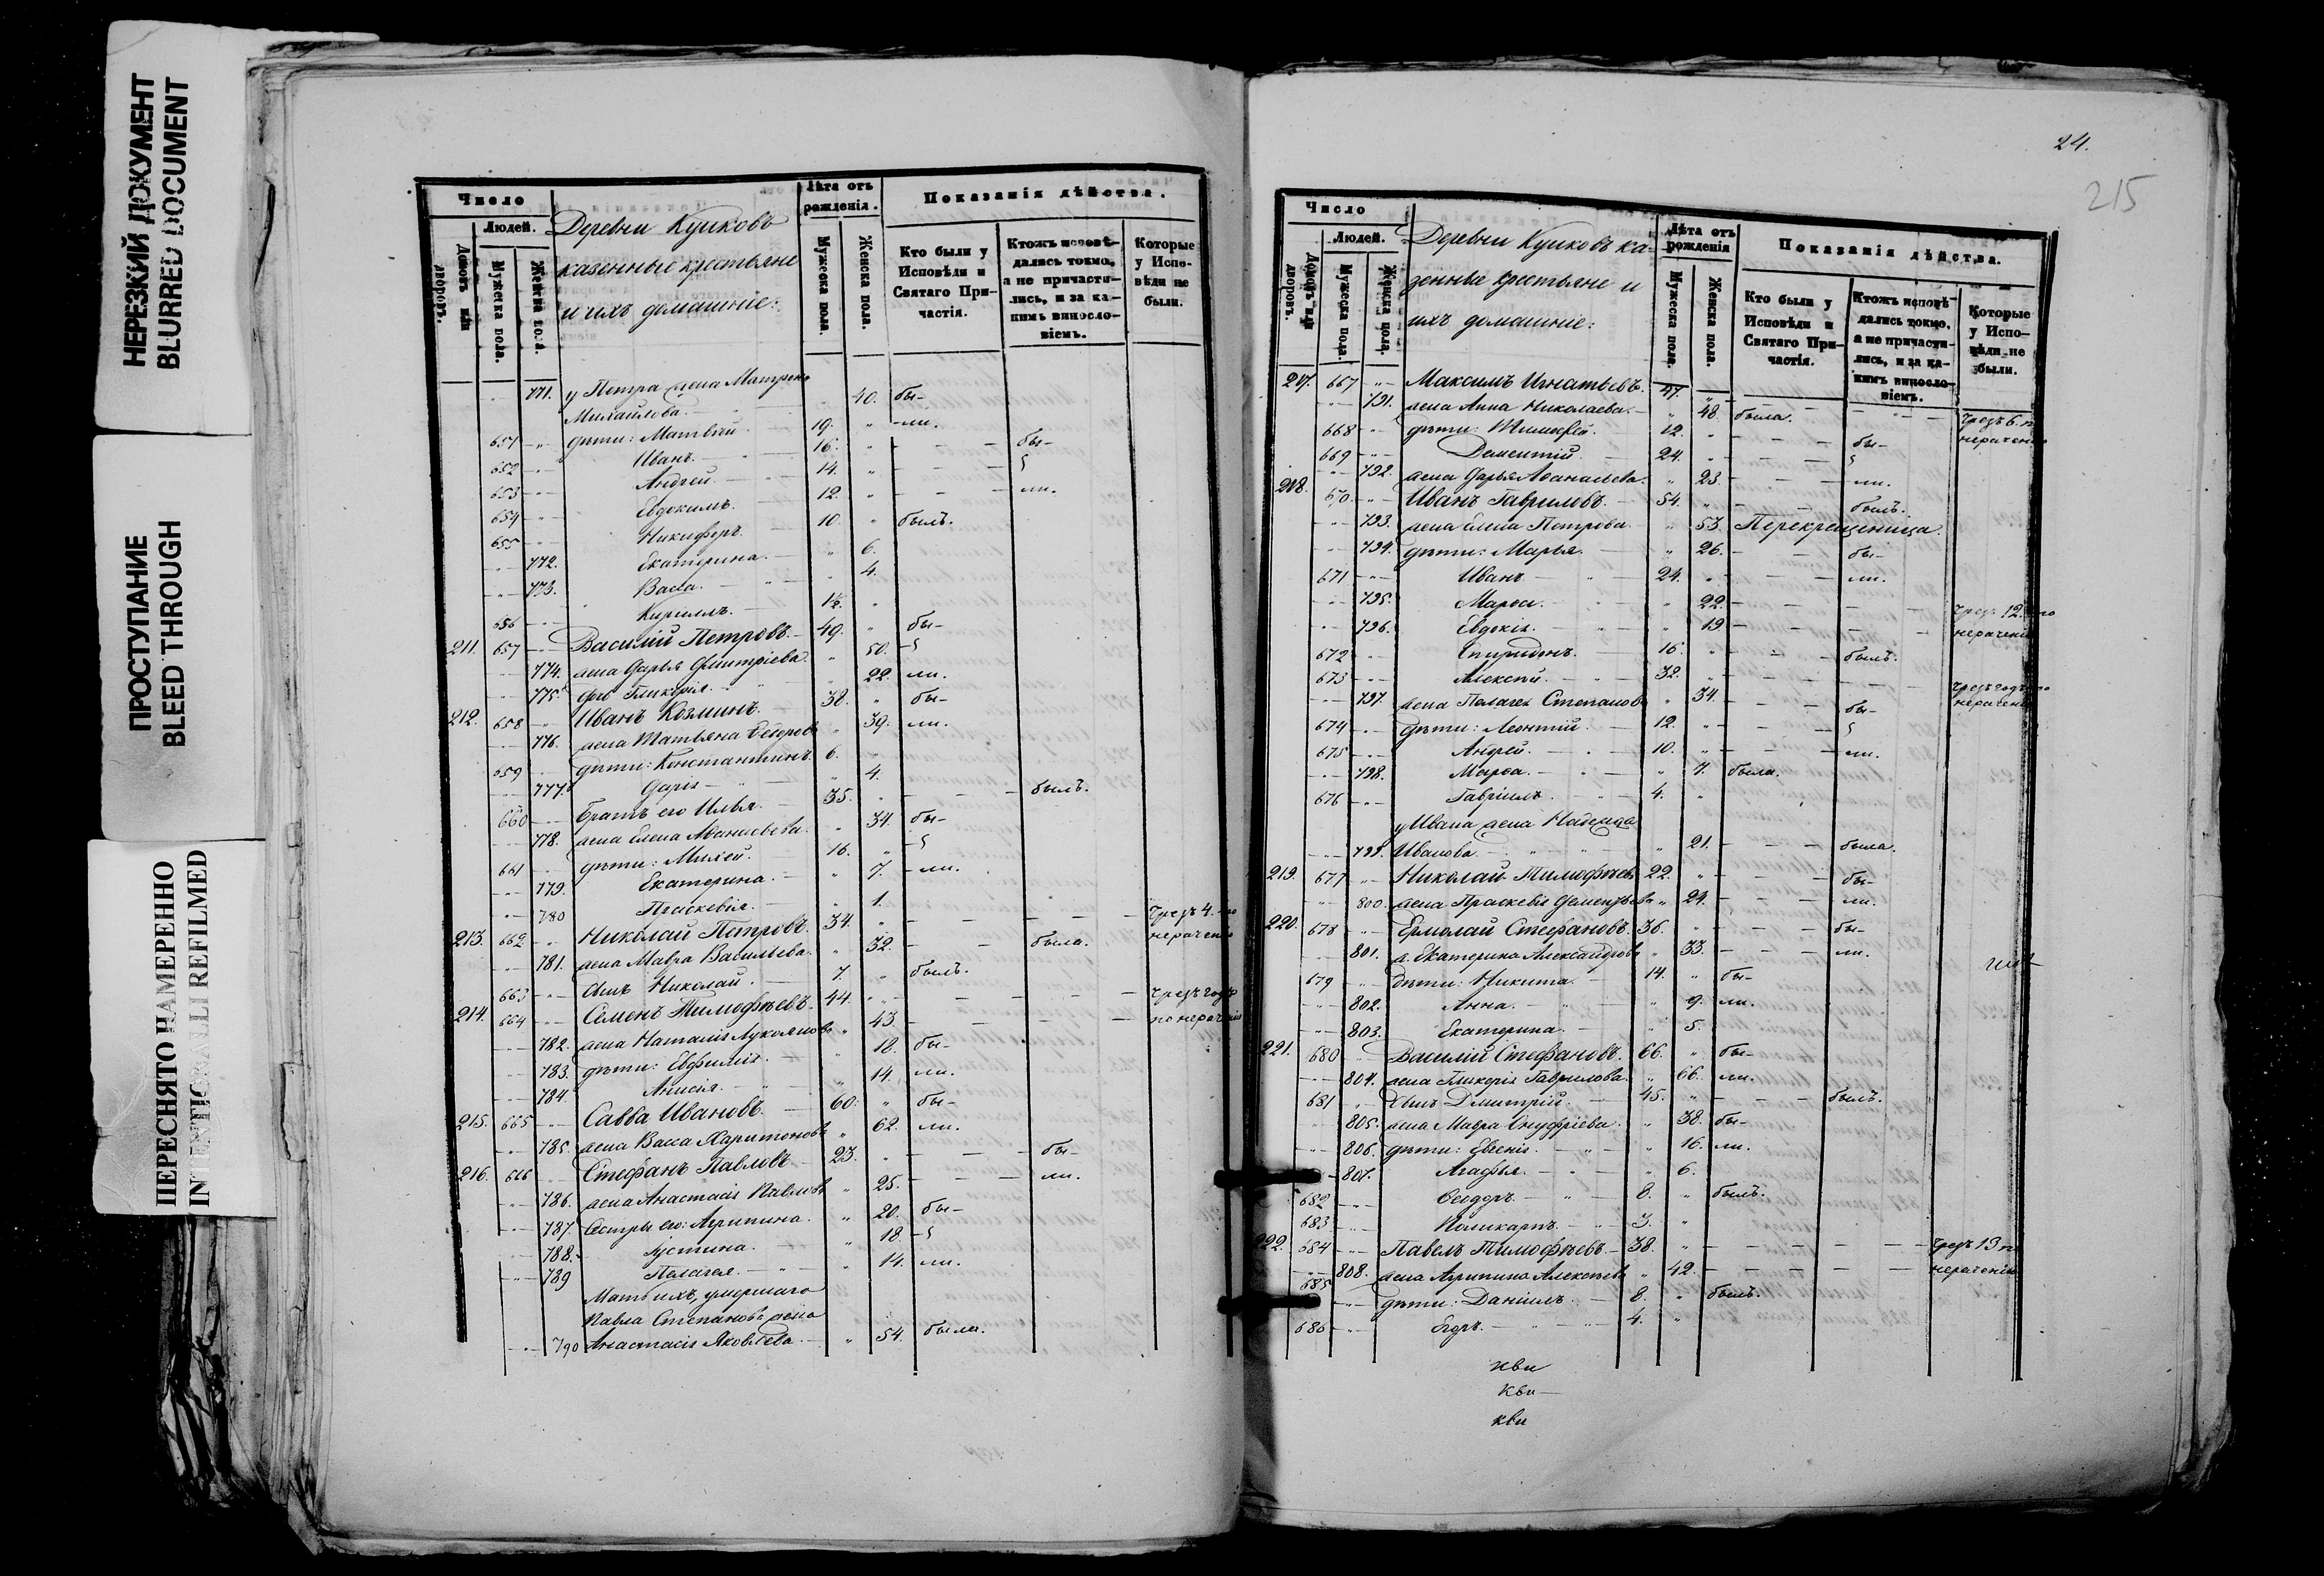 НЕРЕЗКИЙ ДОКУМЕНТ
BLURRED DOCUMENT
ПРОСТУПАНИЕ
BLEED THROUGH
ПЕРЕСНЯТО НАМЕРЕННО
INTENTIONALLI REFILMED
Число
Людей.
Домовъ или дворовъ.
Мужеска пола.
Женска пола.
Деревни Куиковъ
казенные крестьяне
и ихъ домашніе:
Лѣта отъ рожденія.
Мужеска пола.
Женска пола.
Показанія дѣйства.
Кто были у Исповѣди и Святаго Причастія.
Ктожъ исповѣдались токмо, а не причастились, и за какимъ винословіемъ.
Которые у Исповѣди не были.
771. у Петра жена Матрена
Михайлова. 40. бы-
651 дѣти: Матвѣй 19. " -ли.
652 Иванъ. 16. " бы-
653 Андрей. 14. "
654 Евдокимъ. 12. " ли.
655 Никифоръ. 10. " былъ.
772. Екатерина. " 6.
773. Васса. " 4.
656 Кириллъ. 1½. "
211. 657 Василій Петровъ. 49. " бы-
774. жена Дарья Дмитріева. " 50.
775. дочь Гликерія. " 22. ли.
212. 658 Иванъ Козминъ. 38. " бы-
776. жена Татьяна Ѳедорова " 39. ли.
659 дѣти: Константинъ. 6.
777. Дарія " 4.
660 Братъ его Илья. 35. " былъ.
778. жена Елена Аѳанасьева. " 34. бы-
661 дѣти: 16. "
779. Екатерина. " 7. -ли.
780 Праскевія. " 1.
213. 662 Николай Петровъ. 34. " чрезъ 4. по
нерачению
781. жена Мавра Васильева. " 32. была.
663 Сынъ Николай. 7. " былъ.
214. 664 Семенъ Тимофѣевъ. 44. " чрезъ годъ
по нерачению
782. жена Наталія Лукоянова " 43.
783. дѣти: Евфимія. " 18. бы-
784. Анисія. " 14. ли.
215. 665 Савва Ивановъ. 60. " бы-
785. жена Васса Харитонова " 62. ли.
216. 666 Стефанъ Павловъ 23. " бы-
786. жена Анастасія Павлова " 25. ли.
787. Сестры его: Агрипина. " 20. бы-
788. Іустина. " 18.
789 Пелагея. " 14. ли.
Мать ихъ, умершаго
Павла Степанова жена
790 Анастасія Яковлева. " 54. была.
24.
215
Число
Людей.
Домовъ или дворовъ.
Мужеска пола.
Женска пола.
Деревни Куиковъ ка-
зенные крестьяне и
ихъ домашніе:
Лѣта отъ рожденія
Мужеска пола.
Женска пола.
Показанія дѣйства.
Кто были у Исповѣди и Святаго Причастія.
Ктожъ исповѣдались токмо, а не причастились, и за какимъ винословіемъ.
Которые у Исповѣди не были.
217. 667 Максимъ Игнатьевъ. 47. " чрезъ 6. по
нерачению
791. жена Анна Николаева. " 48. была.
668 дѣти: Тимофей. 12. " бы-
669 Дементій. 24. "
792. жена Дарья Аѳанасьева. " 23. ли.
218. 670 Иванъ Гавриловъ. 54. " былъ.
793. жена Елена Петрова " 53. Перекрещеница.
794. дѣти: Марья. " 26. бы-
671 Иванъ 24. " ли.
795. Марѳа. " 22. чрезъ 12. по
нерачению
796. Евдокія. " 19.
672 Спиридонъ. 16. " былъ.
673 Алексѣй. 32. " чрезъ годъ по
нерачению
797. жена Пелагея Степанова " 34. бы-
674 дѣти: Леонтій. 12. "
675 Андрей. 10. " ли.
798. Марѳа. " 7. была.
676 Гавріилъ. 4. "
у Ивана жена Надежда
799. Иванова. " 21. была.
219. 677 Николай Тимофѣевъ 22. " бы-
800. жена Праскевія Дементьева " 24. ли.
220. 678 Ермолай Стефановъ. 36. " бы-
801. ж. Екатерина Александрова " 33. ли.
679 дѣти: Никита. 14. " бы-
802. Анна. " 9. ли.
803. Екатерина. " 5.
221. 680 Василій Стефановъ. 66. " бы-
804. жена Гликерія Гаврилова. " 66. ли.
681 Сынъ Дмитрій. 45. " былъ.
805. жена Мавра Онуфріева. " 38. бы-
806. дѣти: Евгенія. " 16. ли.
807. Агафья. " 6.
682 Ѳеодоръ. 8. " былъ.
683 Поликарпъ. 3. "
222. 684 Павелъ Тимофѣевъ. 38. " чрезъ 13 по
нерачению
808. жена Агрипина Алексѣева " 42.
685 дѣти: Даніилъ. 8. " былъ.
686 Егоръ. 4. "